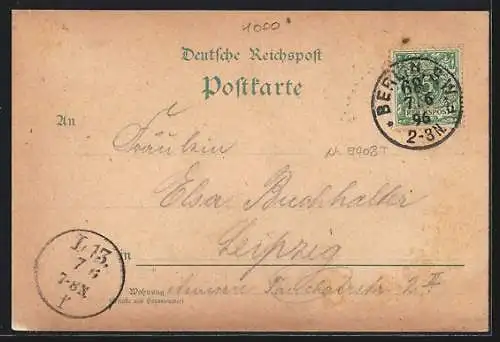 1000
Deutsche Reichspost
Postkarte
BERLIN S.W.
68
7/6
96
2-3N.
An
Fräulein
Elsa Buchhalter
Leipzig
in
Wohnung
(Straße und Hausnummer)
2 II
L.13.
7 6
7-8N